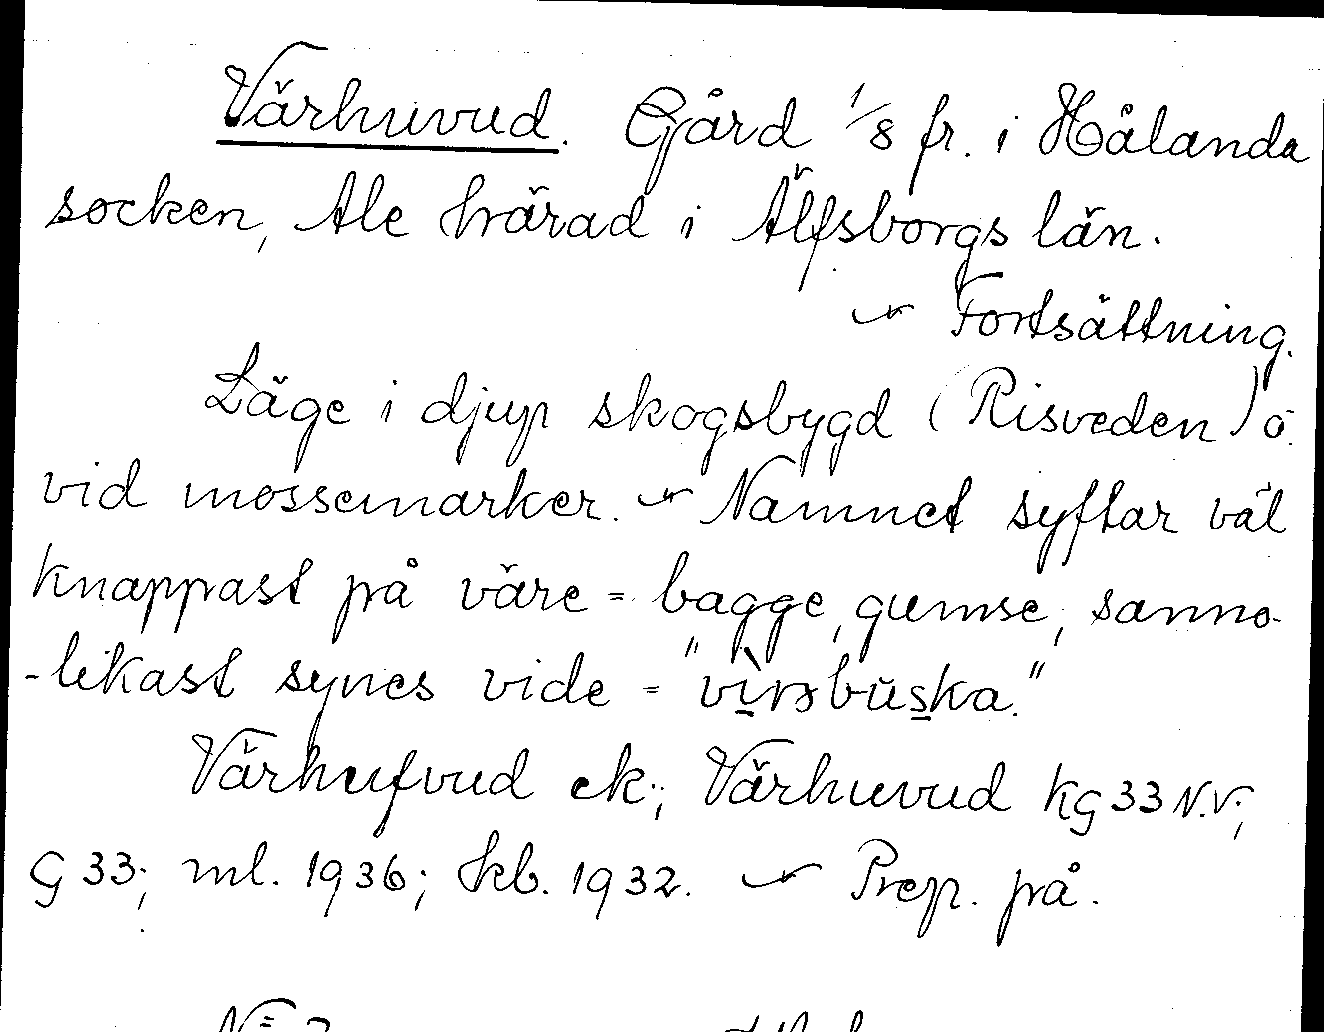 Värhuvud. Gård 1/8 fr. i Hålanda
socken, Ale härad i Älfsborgs län.
~ Fortsättning.
Läge i djup skogsbygd (Risveden) o.
vid mossemarker. ~ Namnet syftar väl
knappast på väre = bagge, gumse, sanno-
-likast synes vide =
Värhufvud ek.; Värhuvud KG 33 N.V.;
G 33; ml. 1936; skb. 1932. ~ Prep. på.